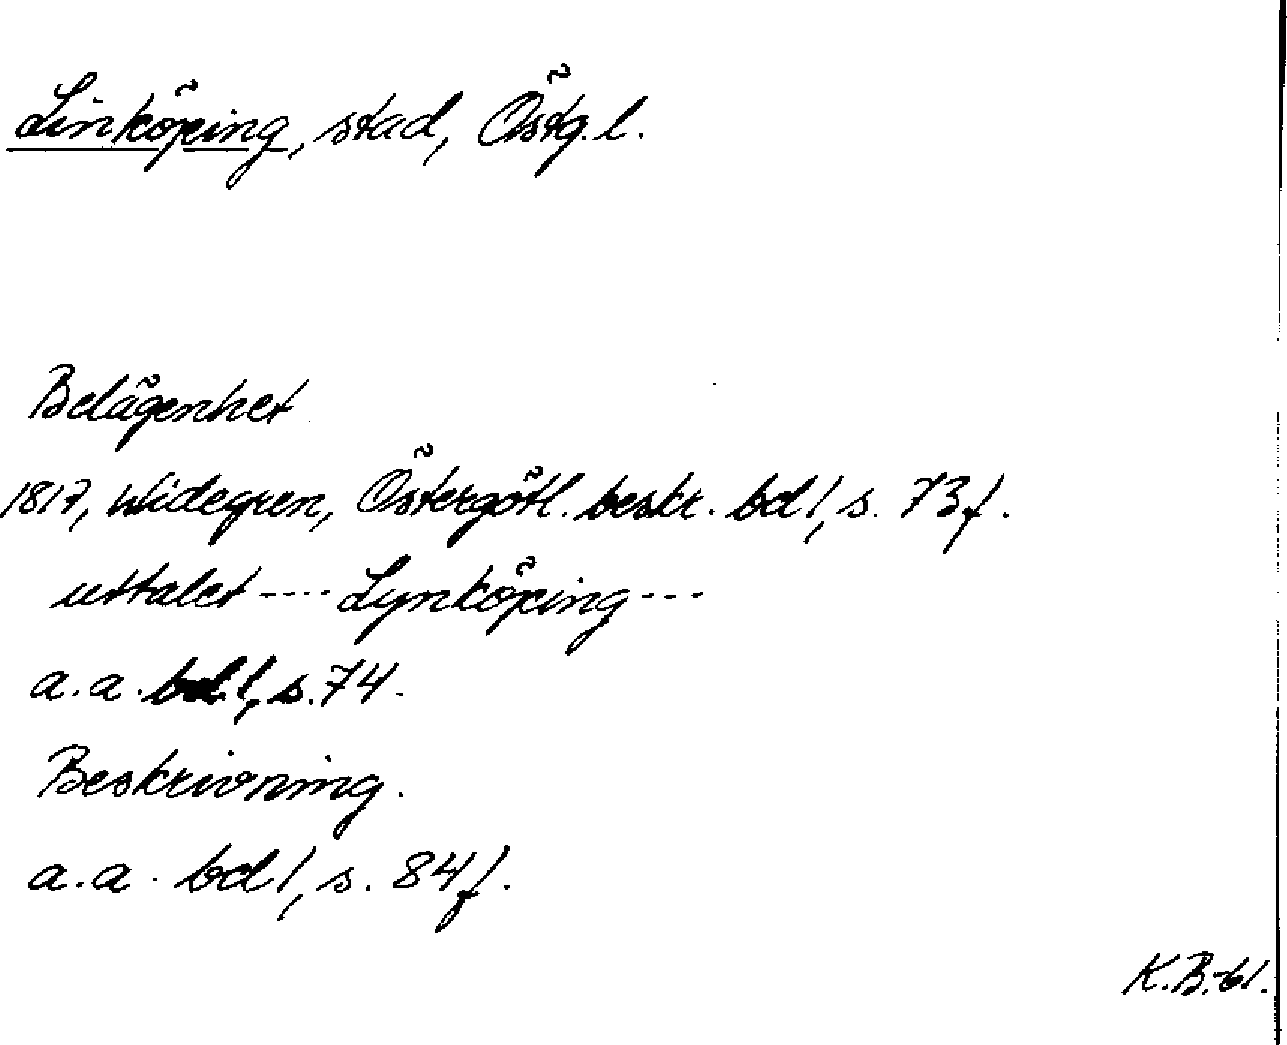 Linköping, stad, Östg.l.
Belägenhet
1817, Widegren, Östergötl. beskr. bd 1, s. 73 f.
uttalet ---- Lynköping ---
a.a. bd. 1, s. 74.
Beskrivning.
a.a. bd 1, s. 84 f.
K.B.-61.